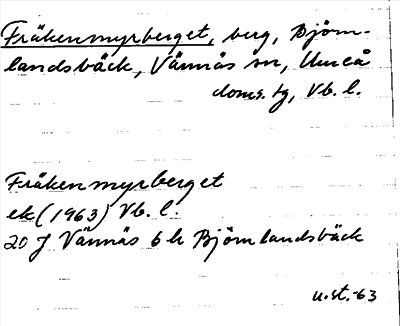 Fräkenmyrberget, berg, Björn-
landsbäck, Vännäs sn, Umeå
doms. tg, Vb. l.
Fräkenmyrberget
ek (1963) Vb. l.
20 J Vännäs 6 h Björnlandsbäck
u.st.-63